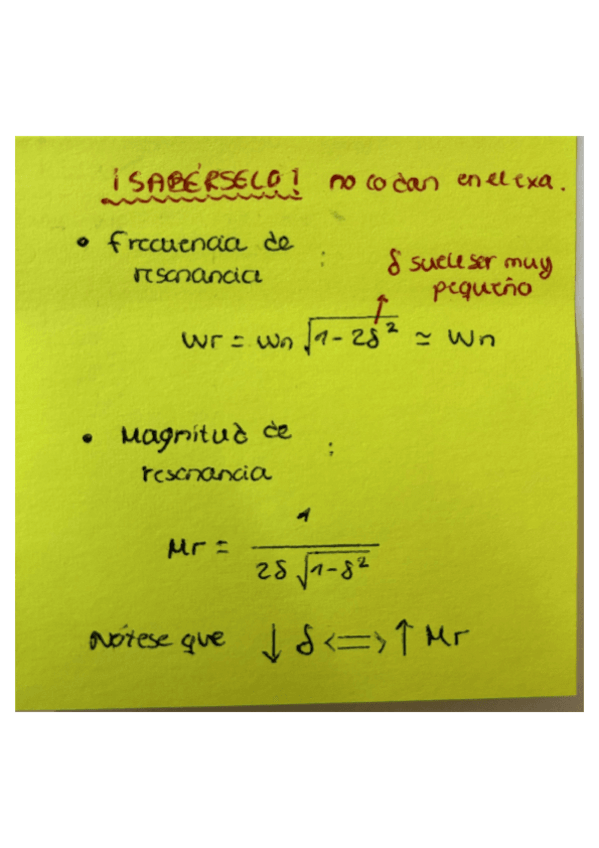 ¡SABÉRSELO! no lo dan en el exa.
• frecuencia de
resonancia :
δ suele ser muy
pequeño
Wr = Wn √1-2δ² ≃ Wn
• Magnitud de
resonancia :
Mr = 1 / 2δ √1-δ²
Nótese que ↓ δ <=> ↑ Mr